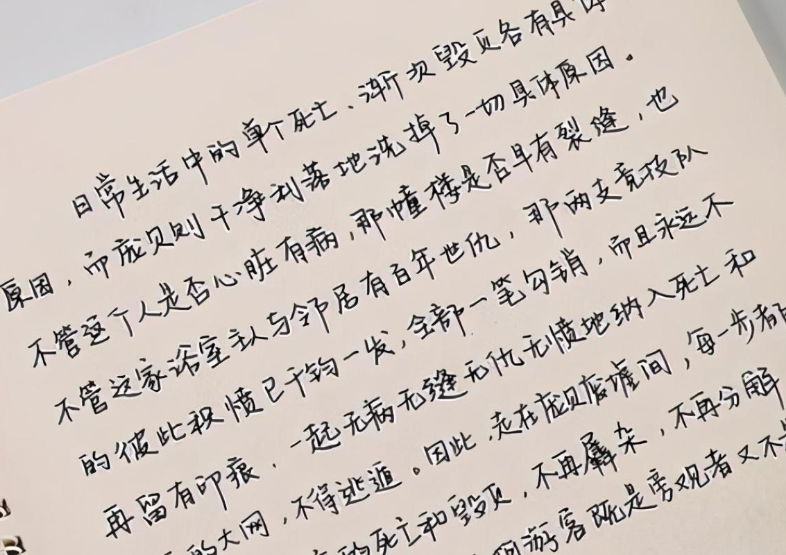 日常生活中的单个死亡、渐次毁灭各有具体
原因，而庞贝则干净利落地洗掉了一切具体原因。
不管这个人是否心脏有病，那幢楼是否早有裂缝，也
不管这家浴室主人与邻居有百年世仇，那两支竞技队
的彼此积愤已千钧一发，全部一笔勾销，而且永远不
再留有印痕，一起无病无缝无仇无愤地纳入死亡和
的大网，不得逃遁。因此，走在庞贝废墟间，每一步都
的死亡和毁灭，不再羼杂，不再分解
游客既是旁观者又不